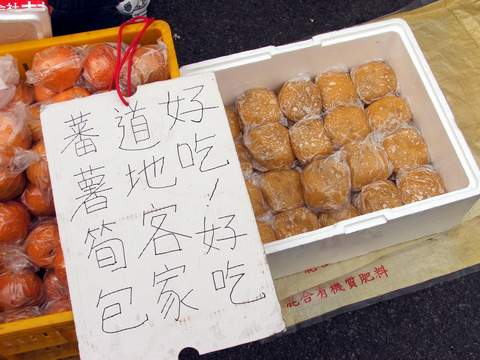 好吃！好吃
道地客家
蕃薯筍包
混合有機質肥料